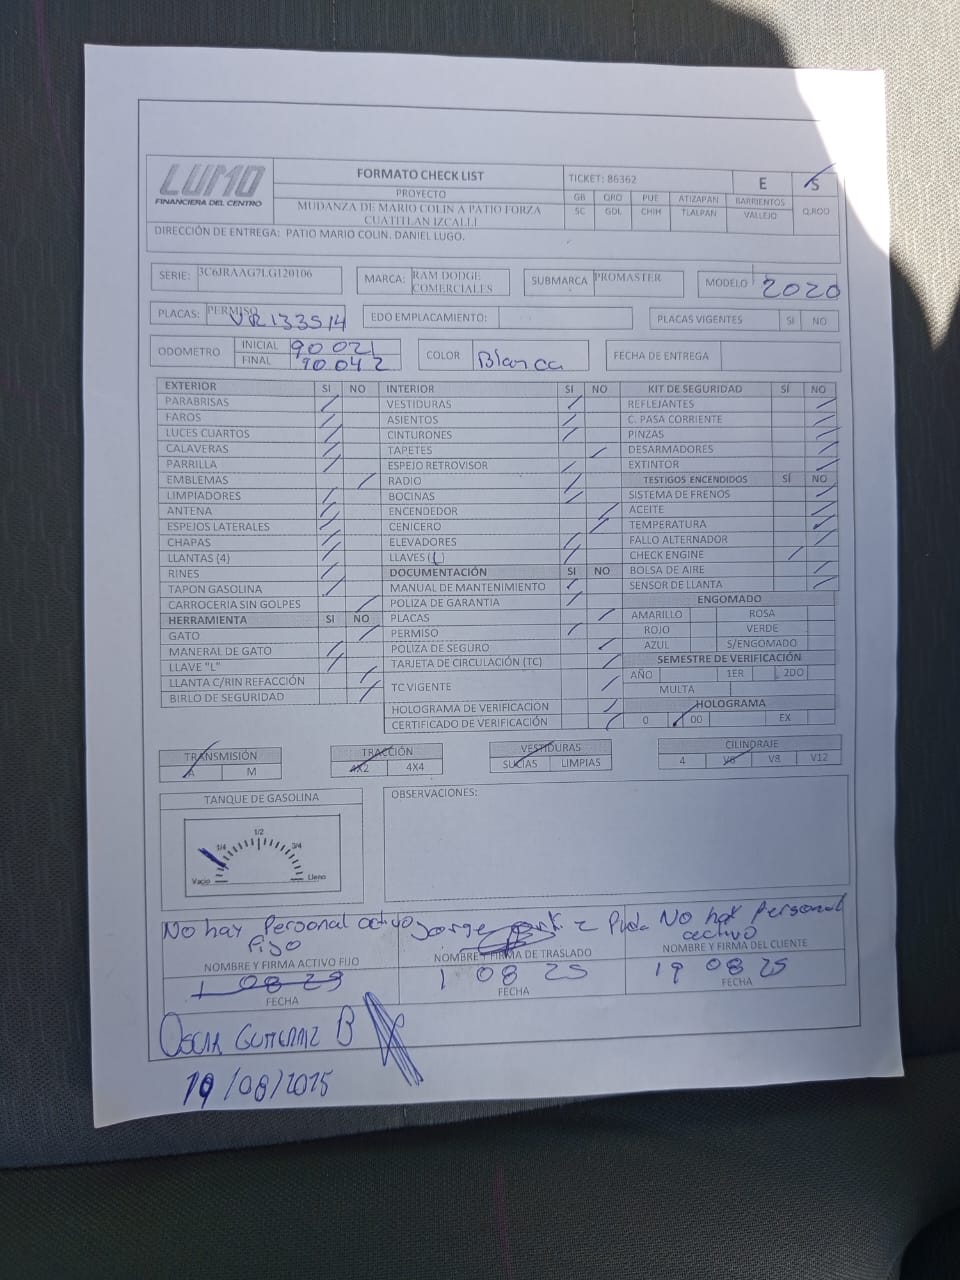 LUMO
FINANCIERA DEL CENTRO
FORMATO CHECK LIST
PROYECTO
MUDANZA DE MARIO COLIN A PATIO FORZA
CUATITLAN IZCALLI
TICKET: 86362 E S
GB QRO PUE ATIZAPAN BARRIENTOS Q.ROO
SC GDL CHIH TLALPAN VALLEJO
DIRECCIÓN DE ENTREGA: PATIO MARIO COLIN. DANIEL LUGO.
SERIE: 3C6JRAAG7LG120106 MARCA: RAM DODGE COMERCIALES SUBMARCA PROMASTER MODELO 2020
PLACAS: PERMISO EDO EMPLACAMIENTO: PLACAS VIGENTES SI NO
ODOMETRO INICIAL 90 021 COLOR Blanca FECHA DE ENTREGA
FINAL 90 042
EXTERIOR SI NO INTERIOR SI NO KIT DE SEGURIDAD SÍ NO
PARABRISAS VESTIDURAS REFLEJANTES
FAROS ASIENTOS C. PASA CORRIENTE
LUCES CUARTOS CINTURONES PINZAS
CALAVERAS TAPETES DESARMADORES
PARRILLA ESPEJO RETROVISOR EXTINTOR
EMBLEMAS RADIO TESTIGOS ENCENDIDOS SÍ NO
LIMPIADORES BOCINAS SISTEMA DE FRENOS
ANTENA ENCENDEDOR ACEITE
ESPEJOS LATERALES CENICERO TEMPERATURA
CHAPAS ELEVADORES FALLO ALTERNADOR
LLANTAS (4) LLAVES ( CHECK ENGINE
RINES DOCUMENTACIÓN SI NO BOLSA DE AIRE
TAPON GASOLINA MANUAL DE MANTENIMIENTO SENSOR DE LLANTA
CARROCERIA SIN GOLPES POLIZA DE GARANTIA ENGOMADO
HERRAMIENTA SI NO PLACAS AMARILLO ROSA
GATO PERMISO ROJO VERDE
MANERAL DE GATO POLIZA DE SEGURO AZUL S/ENGOMADO
LLAVE "L" TARJETA DE CIRCULACIÓN (TC) SEMESTRE DE VERIFICACIÓN
LLANTA C/RIN REFACCIÓN TC VIGENTE AÑO 1ER 2DO
BIRLO DE SEGURIDAD MULTA
HOLOGRAMA DE VERIFICACIÓN HOLOGRAMA
CERTIFICADO DE VERIFICACIÓN 0 00 EX
TRANSMISIÓN TRACCIÓN VESTIDURAS CILINDRAJE
A M 4X2 4X4 SUCIAS LIMPIAS 4 V6 V8 V12
TANQUE DE GASOLINA OBSERVACIONES:
1/2
1/4 3/4
Vacio Lleno
No hay Personal activo Fijo
Jorge
No hay Personal activo
NOMBRE Y FIRMA ACTIVO FIJO NOMBRE Y FIRMA DE TRASLADO NOMBRE Y FIRMA DEL CLIENTE
1 08 25 19 08 25
FECHA FECHA FECHA
OSCAR B
19/08/2025